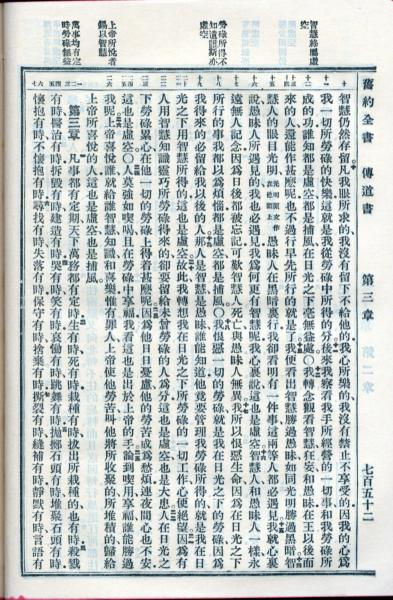 舊約全書 傳道書 第三章 七百五十二
智慧終屬虛空
勞碌所得不知遺誰亦虛空
上帝所悅者錫以智慧
萬事均有定時勞碌無益
智慧仍然存留凡我眼所求的我沒有留下不給他的我心所樂的我沒有禁止不享受的因我的心爲
我一切所勞碌的快樂這就是我從勞碌中所得的分後來我察看我手所經營的一切事和我勞碌所
成的功誰知都是虛空都是捕風在日光之下毫無益處〇我轉念觀看智慧狂妄和愚昧在王以後而
來的人還能作甚麽呢也不過行早先所行的就是了我便看出智慧勝過愚昧如同光明勝過黑暗智
慧人的眼目光明光明原文作在他頭上愚昧人在黑暗裏行我卻看明有一件事這兩等人都必遇見我就心裏
說愚昧人所遇見的我也必遇見我爲何更有智慧呢我心裏說這也是虛空智慧人和愚昧人一樣永
遠無人記念因爲日後都被忘記可歎智慧人死亡與愚昧人無異我所以恨惡生命因爲在日光之下
所行的事我都以爲煩惱都是虛空都是捕風〇我恨惡一切的勞碌就是我在日光之下的勞碌因爲
我得來的必留給我以後的人那人是智慧是愚昧誰能知道他竟要管理我勞碌所得的就是我在日
光之下用智慧所得的這也是虛空故此我轉想我在日光之下所勞碌的一切工作心便絕望因爲有
人用智慧知識靈巧所勞碌得來的卻要留給未曾勞碌的人爲分這也是虛空也是大患人在日光之
下勞碌累心在他一切的勞碌上得着甚麽呢因爲他日日憂慮他的勞苦成爲愁煩連夜間心也不安
這也是虛空〇人莫強如喫喝且在勞碌中享福我看這也是出於上帝的手論到喫用享福誰能勝過
我呢上帝喜悅誰就給誰智慧知識和喜樂惟有罪人上帝使他勞苦叫他將所收聚的所堆積的歸給
上帝所喜悅的人這也是虛空也是捕風
第三章 凡事都有定期天下萬務都有定時生有時死有時栽種有時拔出所栽種的也有時殺戮
有時醫治有時拆毀有時建造有時哭有時笑有時哀慟有時跳舞有時拋擲石頭有時堆聚石頭有時
懷抱有時不懷抱有時尋找有時失落有時保守有時捨棄有時撕裂有時縫補有時靜默有時言語有